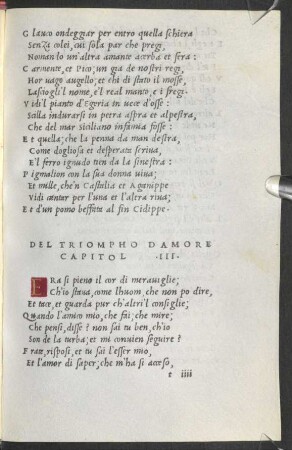 Glauco ondeggiar per entro quella schiera
Senza colei, cui sola par che pregi,
Noman lo un'altra amante acerba et fera:
Carmente, et Pico; un gia de nostri regi,
Hor uago augello; et chi di stato il mosse,
Lasciogli'l nome, e'l real manto, e i fregi.
Vidi'l pianto d'Egeria in uece d'osse:
Scilla indurarsi in petra aspra et alpestra,
Che del mar siciliano infamia fosse:
Et quella; che la penna da man destra,
Come dogliosa et desperata scriua,
E'l ferro ignudo ten da la sinestra:
Pigmalion con la sua donna uiua;
Et mille, che'n Castalia et Aganippe
Vidi cantar per l'una et l'altra riua;
Et d'un pomo beffata al fin Cidippe.
DEL TRIOMPHO D'AMORE
CAPITOL .III.
ERa si pieno il cor di merauiglie;
Ch'io staua, come l'huom, che non po dire,
Et tace, et guarda pur ch'altri'l consiglie;
Quando l'amico mio, che fai; che mire;
Che pensi, disse? non sai tu ben, ch'io
Son de la turba; et mi conuien seguire?
Frate, risposi, et tu sai l'esser mio,
Et l'amor di saper; che m'ha si acceso,
t iiii